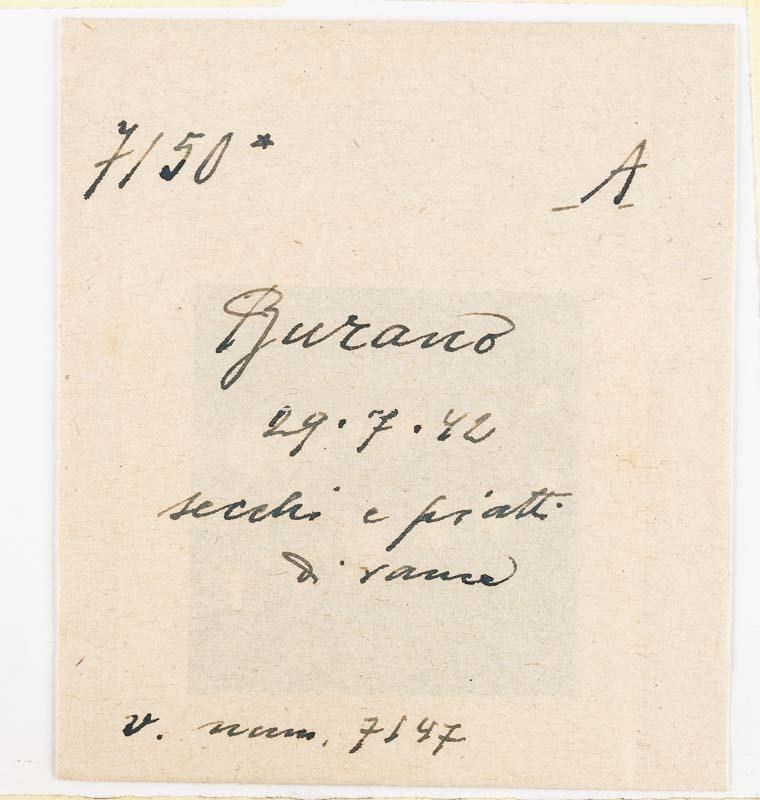 7150*
A
Burano
29.7.42
secchi e piatti
di rame
v. num. 7147